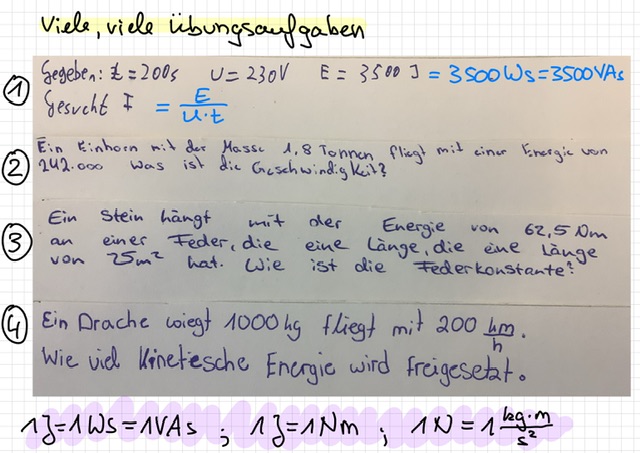 Viele, viele Übungsaufgaben
1 Gegeben: t = 200s U = 230V E = 3500 J = 3500Ws = 3500VAs
Gesucht I = E / U·t
2 Ein Einhorn mit der Masse 1,8 Tonnen fliegt mit einer Energie von
242.000 Was ist die Geschwindigkeit?
3 Ein Stein hängt mit der Energie von 62,5 Nm
an einer Feder, die eine Länge, die eine Länge
von 25m² hat. Wie ist die Federkonstante?
4 Ein Drache wiegt 1000kg fliegt mit 200 km/h.
Wie viel Kinetesche Energie wird freigesetzt.
1J=1Ws=1VAs ; 1J=1Nm ; 1N=1 kg·m/s²